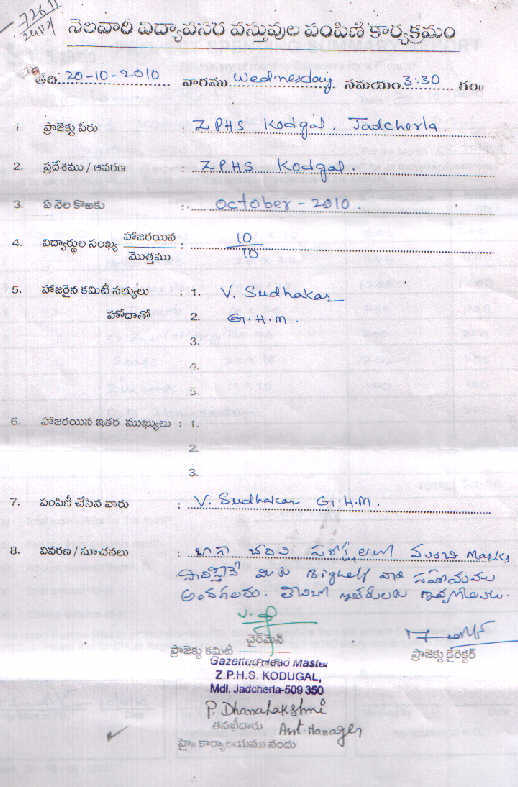 22611
నెలవారి విద్యావసర వస్తువుల పంపిణి కార్యక్రమం
తేది. 20-10-2010 వారము Wednesday సమయం 3:30 గం॥
1 ప్రాజెక్టు పేరు : ZPHS Kodgal, Jadcherla
2. ప్రదేశము / ఆవరణ : ZPHS Kodgal.
3. ఏ నెల కొఱకు : October - 2010.
4. విద్యార్థుల సంఖ్య హాజరయిన : 10
మొత్తము 10
5. హాజరైన కమిటి సభ్యులు : 1. V. Sudhakar
హోదాతో 2. G.H.M.
3.
4.
5.
6. హాజరయిన ఇతర ముఖ్యులు : 1.
2.
3.
7. పంపిణీ చేసిన వారు : V. Sudhakar G.H.M.
8. వివరణ / సూచనలు : బాగా చదివి పరీక్షలలో మంచి Marks
సాధిస్తే మీకు సహాయము
చైర్‌మాన్
ప్రాజెక్టు కమిటి ప్రాజెక్టు డైరెక్టర్
Gazetted Head Master
Z.P.H.S. KODUGAL,
Mdl. Jadcherla-509 350
P. Dhanalakshmi
తనిఖీదారు Asst. Manager
హై॥ కార్యాలయము నందు